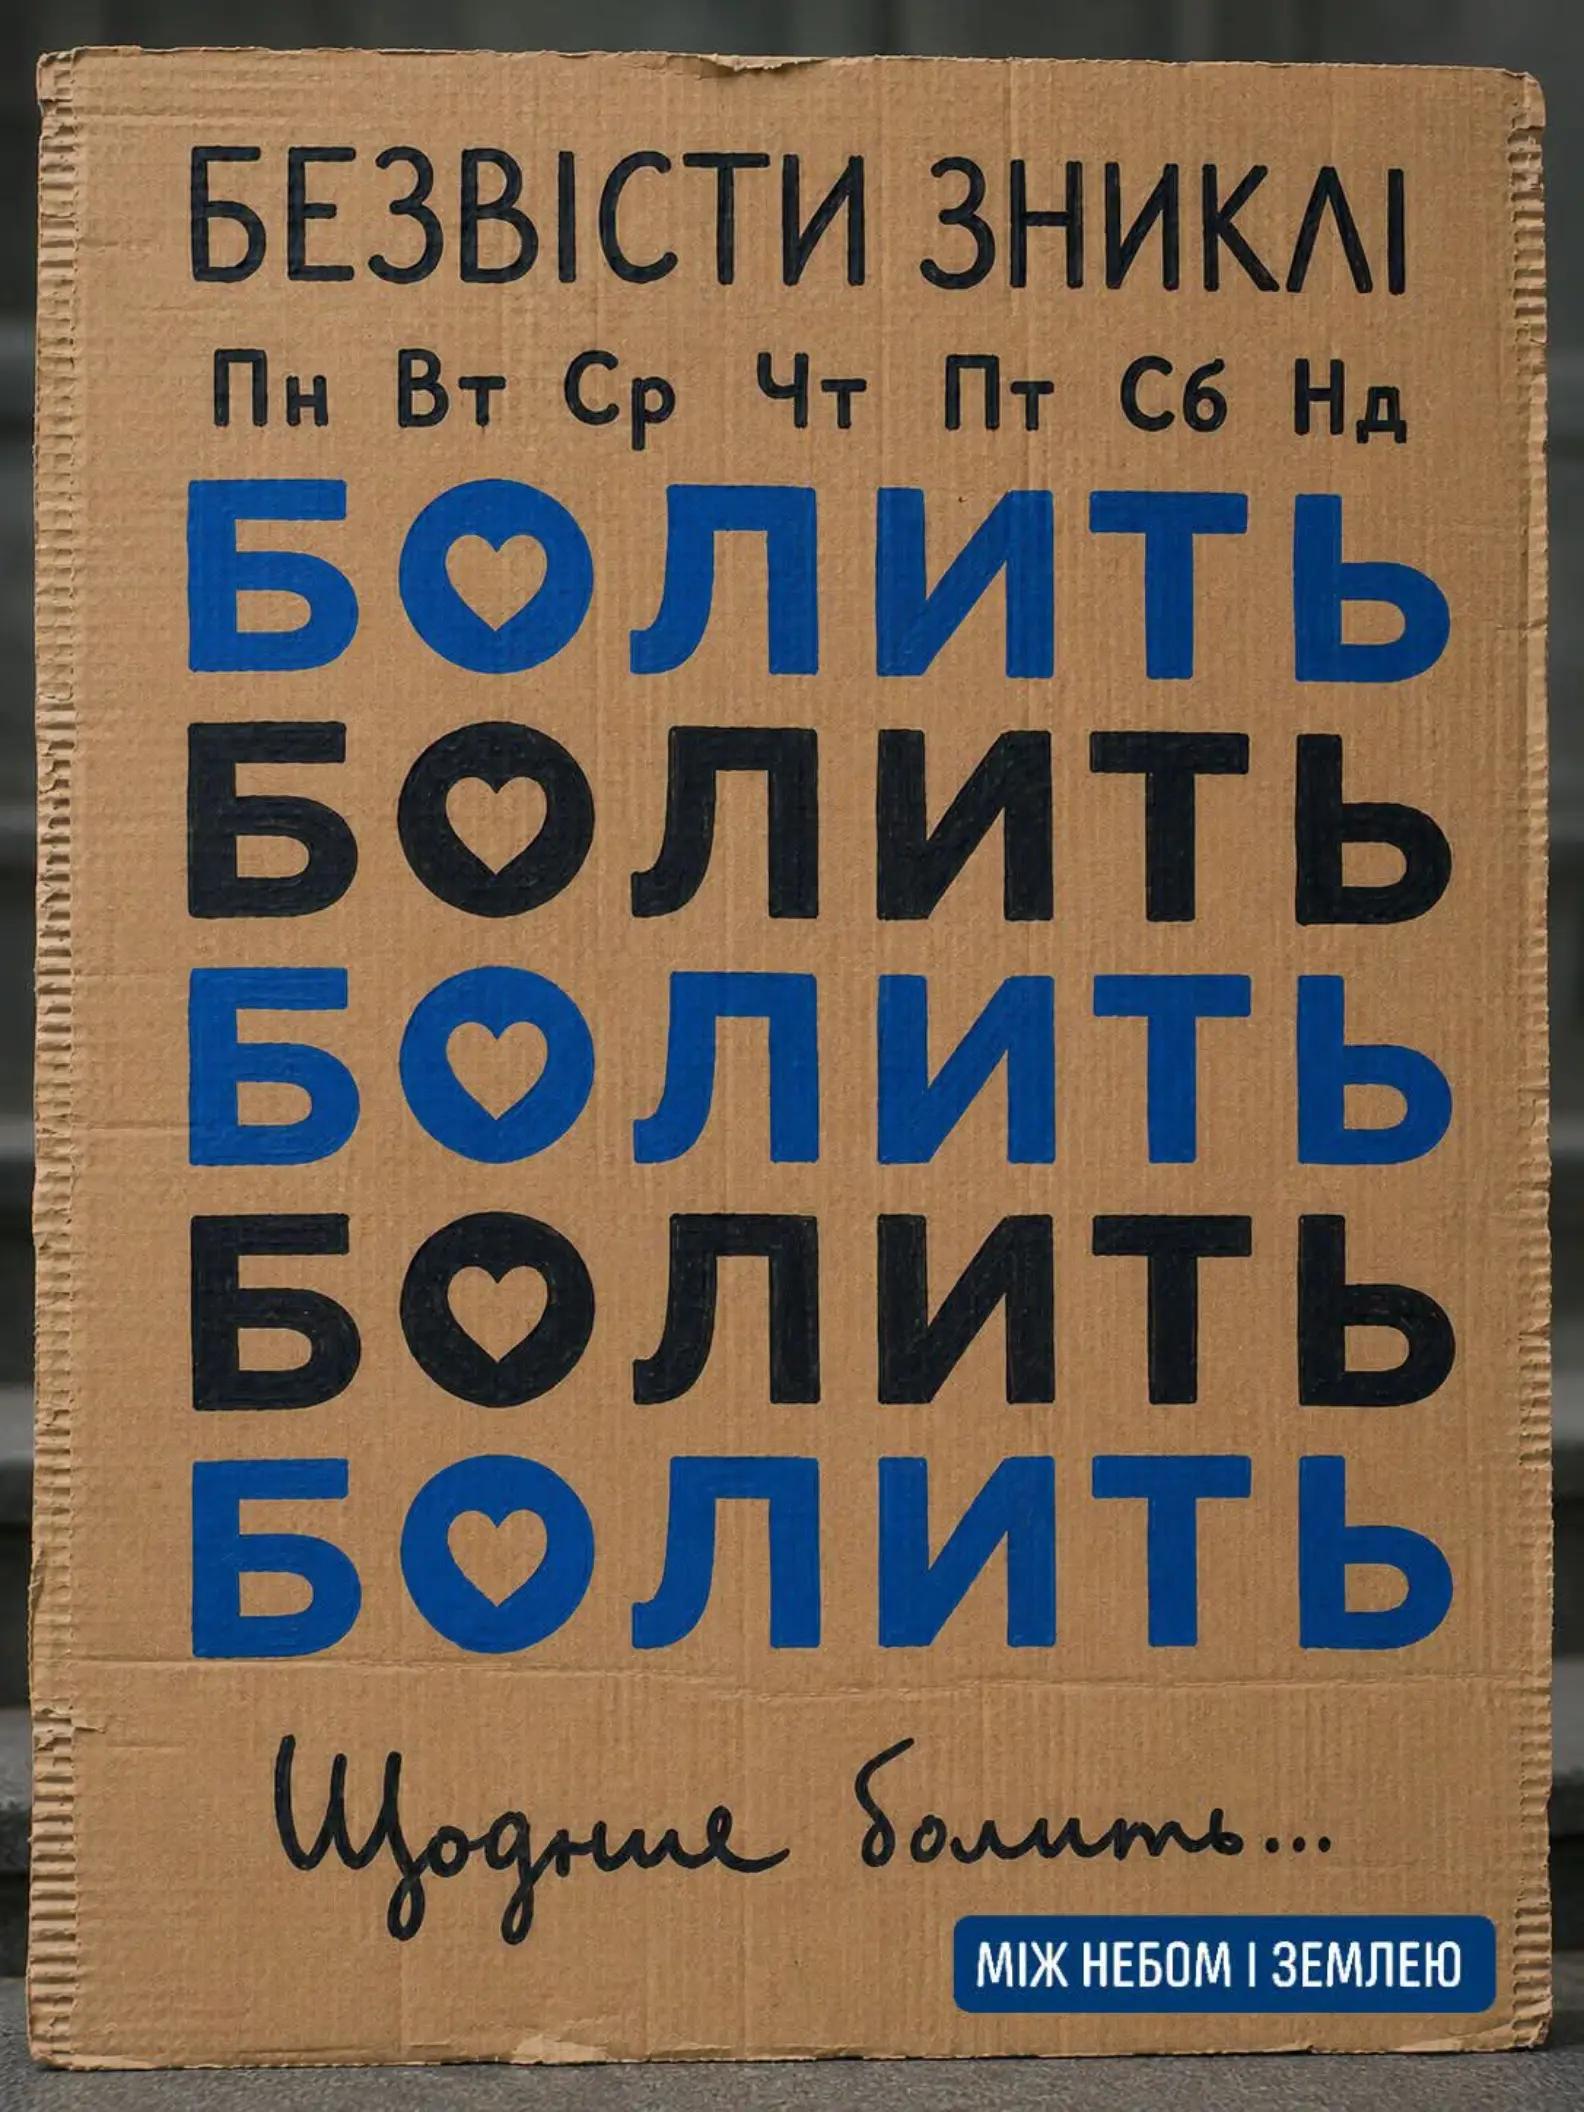 БЕЗВІСТИ ЗНИКЛІ
Пн Вт Ср Чт Пт Сб Нд
БОЛИТЬ
БОЛИТЬ
БОЛИТЬ
БОЛИТЬ
БОЛИТЬ
Щодние болить...
МІЖ НЕБОМ І ЗЕМЛЕЮ